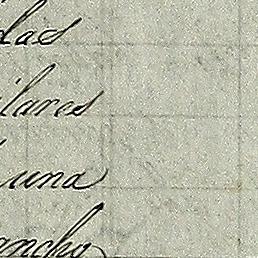 das
ilares
una
ancho